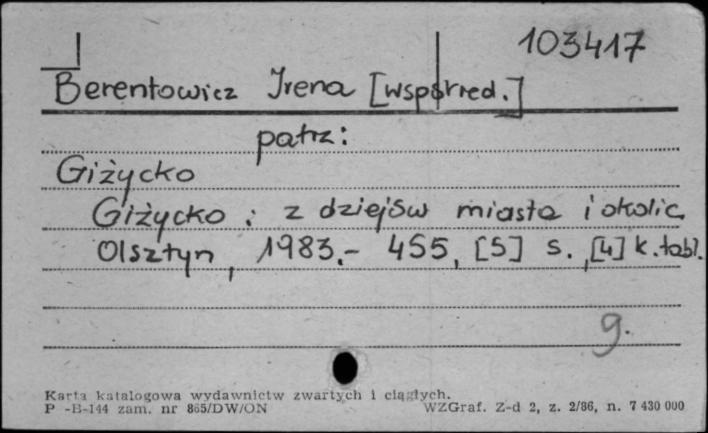 103417
Berentowicz Irena [współred.]
patrz:
Giżycko
Giżycko : z dziejów miasta i okolic.
Olsztyn, 1983.- 455, [5] s., [4] k. tabl.
g.
Karta katalogowa wydawnictw zwartych i ciągłych.
P -B-144 zam. nr 865/DW/ON WZGraf. Z-d 2, z. 2/86, n. 7 430 000